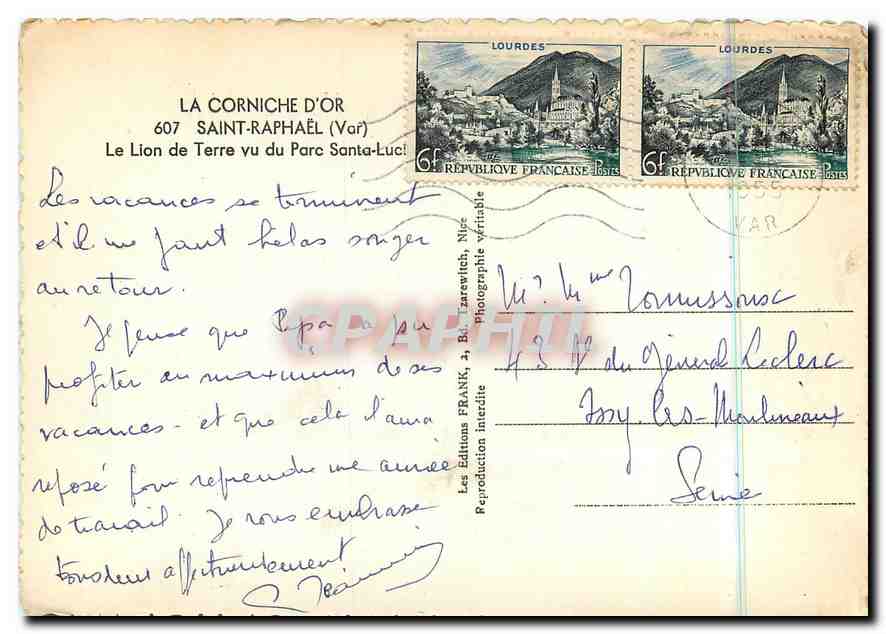 LA CORNICHE D'OR
607 SAINT-RAPHAËL (Var)
Le Lion de Terre vu du Parc Santa-Luci
Les vacances se terminent
et il me faut hélas songer
au retour.
Je pense que Papa a pu
profiter au maximum de ses
vacances - et que cela l'aura
reposé pour reprendre une année
de travail. Je vous embrasse
tous deux affectueusement
LOURDES
6f
RÉPUBLIQUE FRANÇAISE
POSTES
LOURDES
6f
RÉPUBLIQUE FRANÇAISE
POSTES
955
VAR
Les Editions FRANK, 2, Bd. Tzarewitch, Nice
Reproduction interdite Photographie véritable
Mr. Mme
43 du Général Leclerc
Issy-les-Moulineaux
Seine
CPAPHIL